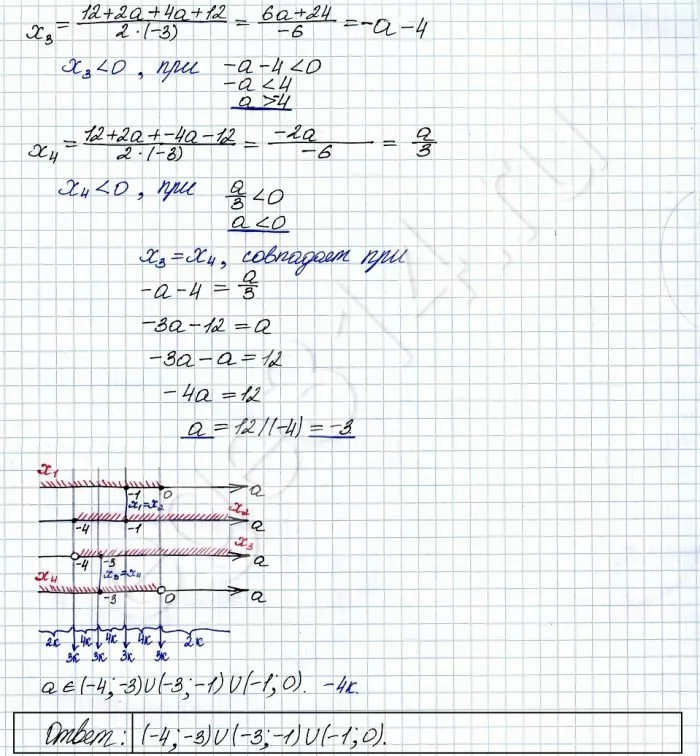 x₃ = (12+2a+4a+12)/(2·(-3)) = (6a+24)/(-6) = -a-4
x₃<0, при -a-4<0
-a<4
a>-4
x₄ = (12+2a+-4a-12)/(2·(-3)) = (-2a)/(-6) = a/3
x₄<0, при a/3<0
a<0
x₃=x₄, совпадает при
-a-4 = a/3
-3a-12=a
-3a-a=12
-4a=12
a = 12/(-4) = -3
x₁ -1 0 a
x₁=x₂ x₂
-4 -1 a
x₃
-4 -3 a
x₄ x₃=x₄
-3 0 a
2к 4к 4к 4к 4к 2к
3к 3к 3к 3к
a∈(-4;-3)∪(-3;-1)∪(-1;0). -4к.
Ответ: (-4;-3)∪(-3;-1)∪(-1;0).